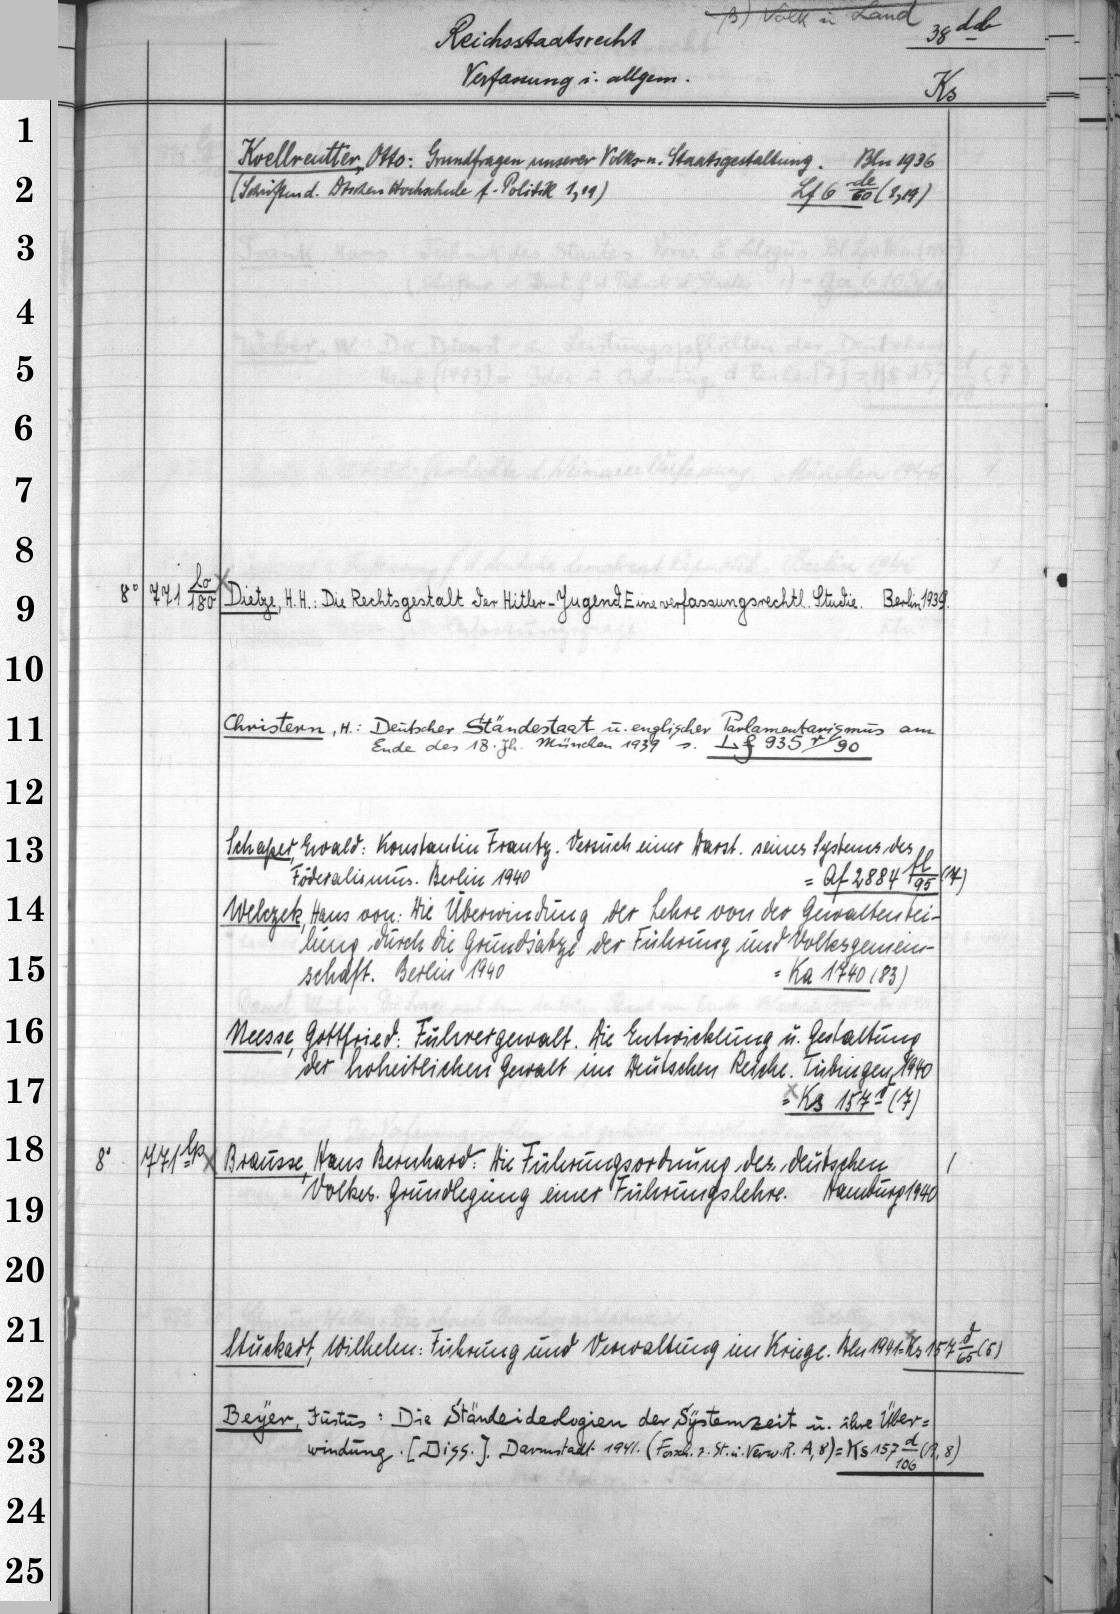 β) Volk u. Land
Reichsstaatsrecht 38 db
Verfassung i. allgem. Ks
Koellreutter, Otto: Grundfragen unserer Volks- u. Staatsgestaltung. Bln 1936
(Schriften d. Dtschen Hochschule f. Politik 1,19) Lf 6 de/60 (1,19)
8° 771 Lo/180 Dietze, H.H.: Die Rechtsgestalt der Hitler-Jugend. Eine verfassungsrechtl. Studie. Berlin 1939.
Christern, H.: Deutscher Ständestaat u. englischer Parlamentarismus am
Ende des 18. Jh. München 1939 s. Lf 935 r/90
Schaper, Ewald: Konstantin Frantz. Versuch einer Darst. seines Systems des
Föderalismus. Berlin 1940 = Qf 2884 fl/95 (4)
Welczek, Hans von: Die Überwindung der Lehre von der Gewaltentei-
lung durch die Grundsätze der Führung und Volksgemein-
schaft. Berlin 1940 = Ka 1740 (83)
Neesse, Gottfried: Führergewalt. Die Entwicklung u. Gestaltung
der hoheitlichen Gewalt im Deutschen Reiche. Tübingen 1940
= Ks 157 d (7)
8° 771 Lp Brausse, Hans Bernhard: Die Führungsordnung des deutschen 1
Volkes. Grundlegung einer Führungslehre. Hamburg 1940
Stuckart, Wilhelm: Führung und Verwaltung im Kriege. Bln 1941 = Ks 157 d/65 (5)
Beyer, Justus: Die Ständeideologien der Systemzeit u. ihre Über=
windung. [Diss.]. Darmstadt 1941. (Forsch. z. St. u. Verw. R. A, 8) = Ks 157 d/106 (A, 8)
1
2
3
4
5
6
7
8
9
10
11
12
13
14
15
16
17
18
19
20
21
22
23
24
25